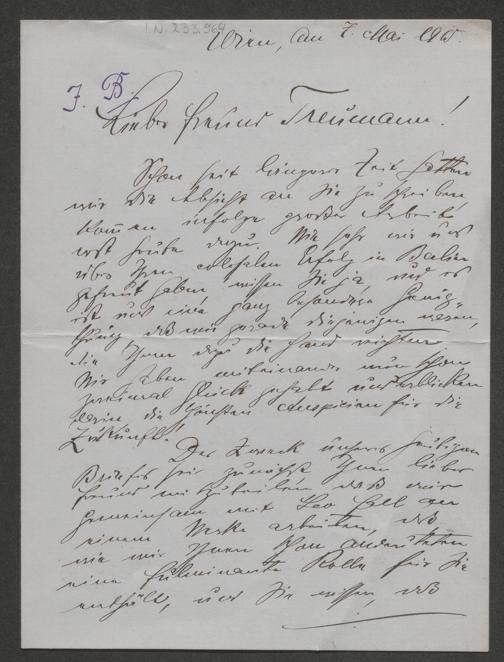 I.N. 233.964
Wien, den 7. Mai 191
J. B.
Lieber Freund Treumann!
Schon seit längerer Zeit hatten
wir die Absicht an Sie zu schreiben,
kommen infolge großer Arbeit
erst heute dazu. Wie sehr wir uns
über Ihren colossalen Erfolg in Berlin
gefreut haben wissen Sie ja, und es
ist uns eine ganz besondere Genug-
thuung daß wir gerade diejenigen waren,
die Ihnen dazu die Hand reichten.
Wir haben miteinander nun schon
zweimal Glück gehabt und erblicken
darin die schönsten Auspicien für die
Zukunft!
Der Zweck unseres heutigen
Briefes sei zunächst Ihnen lieber
Freund mitzuteilen daß wir
gemeinsam mit Leo Fall an
einem Werke arbeiten, das
wie wir Ihnen schon andeuteten
eine fulminante Rolle für Sie
enthält, und Sie wissen, daß